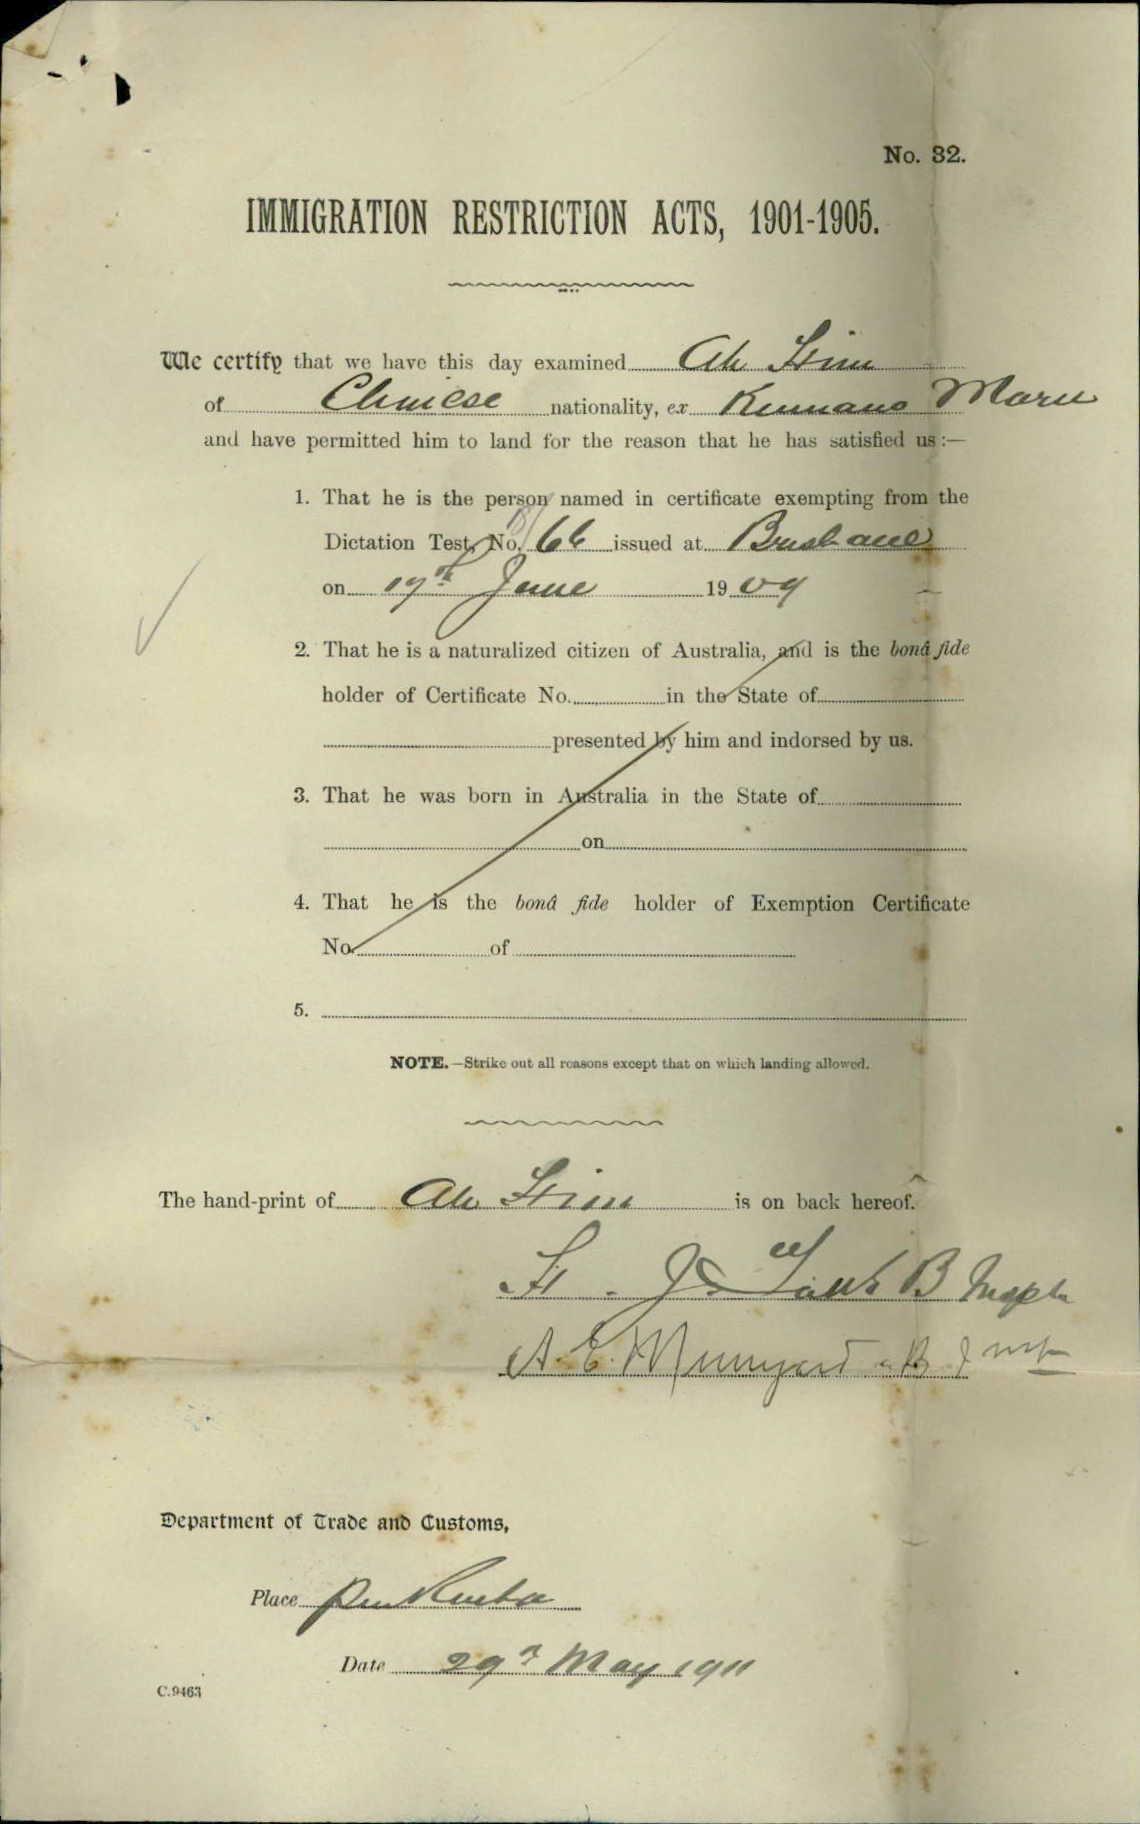 No. 32.
IMMIGRATION RESTRICTION ACTS, 1901-1905.
We certify that we have this day examined Ah
of Chinese nationality, ex Kumano Maru
and have permitted him to land for the reason that he has satisfied us:—
1. That he is the person named in certificate exempting from the
Dictation Test, No. 66 issued at Brisbane
on June 1909
2. That he is a naturalized citizen of Australia, and is the bonâ fide
holder of Certificate No. in the State of
presented by him and indorsed by us.
3. That he was born in Australia in the State of
on
4. That he is the bonâ fide holder of Exemption Certificate
No. of
5.
NOTE.—Strike out all reasons except that on which landing allowed.
The hand-print of Ah is on back hereof.
A. E.
Department of Trade and Customs,
Place Pinkenba
Date 29th May 1911
C.9463